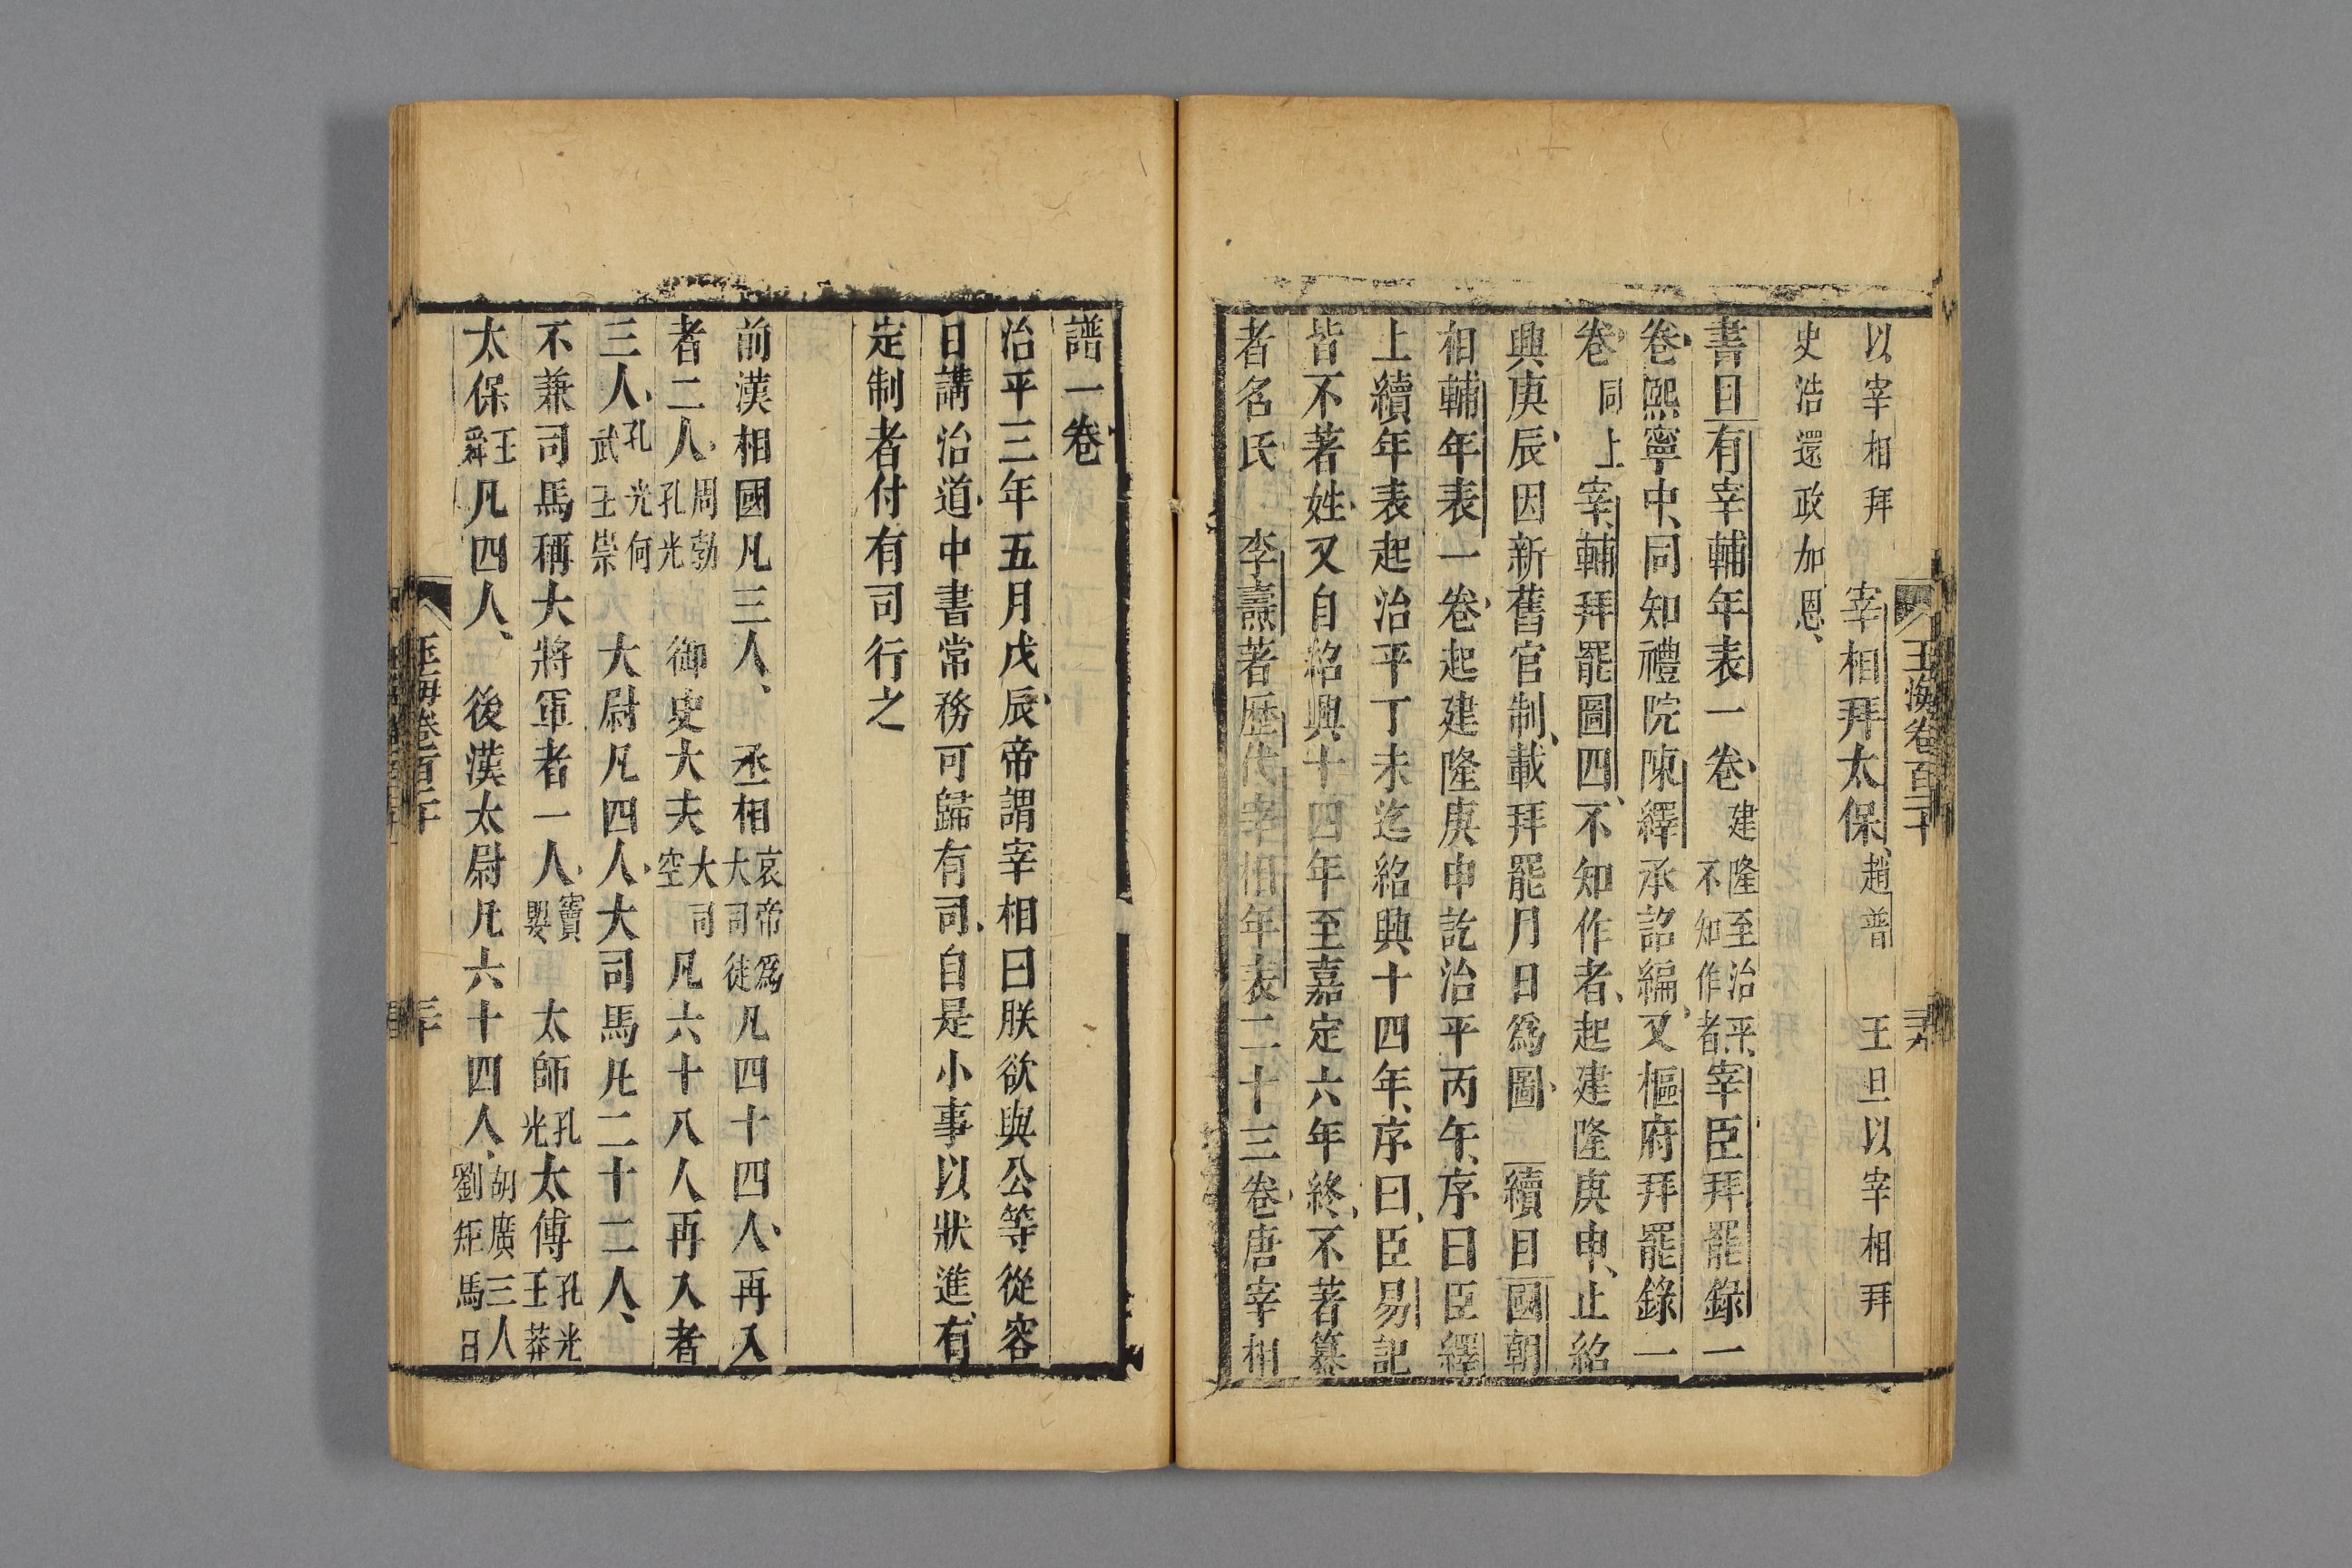 玉海卷百二十
以宰相拜 宰相拜太保趙普 王旦以宰相拜
史浩還政加恩
書目有宰輔年表一卷建隆至治平不知作者宰臣拜罷錄一
卷熙寧中同知禮院陳繹承詔編又樞府拜罷錄一
卷同上宰輔拜罷圖四不知作者起建隆庚申止紹
興庚辰因新舊官制載拜罷月日爲圖 續目國朝
相輔年表一卷起建隆庚申訖治平丙午序曰臣繹
上續年表起治平丁未迄紹興十四年序曰臣易記
皆不著姓又自紹興十四年至嘉定六年終不著纂
者名氏 李燾著歷代宰相年表二十三卷唐宰相
譜一卷
治平三年五月戊辰帝謂宰相曰朕欲與公等從容
日講治道中書常務可歸有司自是小事以狀進有
定制者付有司行之
前漢相國凡三人 丞相哀帝爲大司徒凡四十四人再入
者二人周勃孔光 御史大夫大司空凡六十八人再入者
三人孔光何武王崇 大尉凡四人大司馬凡二十二人
不兼司馬稱大將軍者一人竇嬰 太師孔光太傅孔光王莽
太保王舜凡四人 後漢太尉凡六十四人胡廣三人劉矩馬日
玉海卷百二十